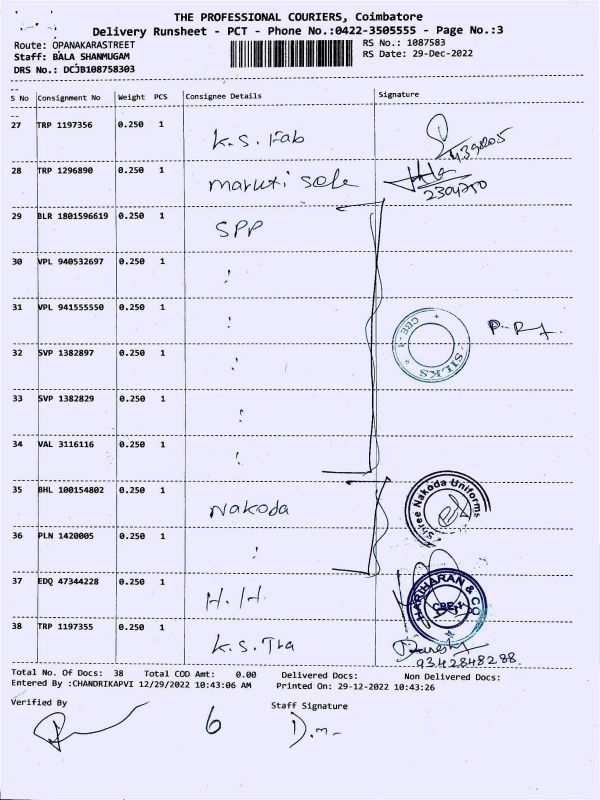 THE PROFESSIONAL COURIERS, Coimbatore
Delivery Runsheet - PCT - Phone No.:0422-3505555 - Page No.:3
Route: OPANAKARASTREET
RS No.: 1087583
Staff: BALA SHANMUGAM
RS Date: 29-Dec-2022
DRS No.: DCJB108758303
S No Consignment No Weight PCS Consignee Details Signature
27 TRP 1197356 0.250 1 K.S. Fab
28 TRP 1296890 0.250 1 maruti sole
29 BLR 1801596619 0.250 1 SPP
30 VPL 940532697 0.250 1
31 VPL 941555550 0.250 1
CBE-1 SILKS
32 SVP 1382897 0.250 1
33 SVP 1382829 0.250 1
34 VAL 3116116 0.250 1
35 BHL 100154802 0.250 1 Nakoda Shree Nakoda Uniforms
36 PLN 1420005 0.250 1
37 EDQ 47344228 0.250 1 H.H. HARIHARAN & CO CBE-1
38 TRP 1197355 0.250 1 K.S. Tra
9342848288
Total No. Of Docs: 38 Total COD Amt: 0.00 Delivered Docs: Non Delivered Docs:
Entered By :CHANDRIKAPVI 12/29/2022 10:43:06 AM Printed On: 29-12-2022 10:43:26
Verified By Staff Signature
6 D.m-